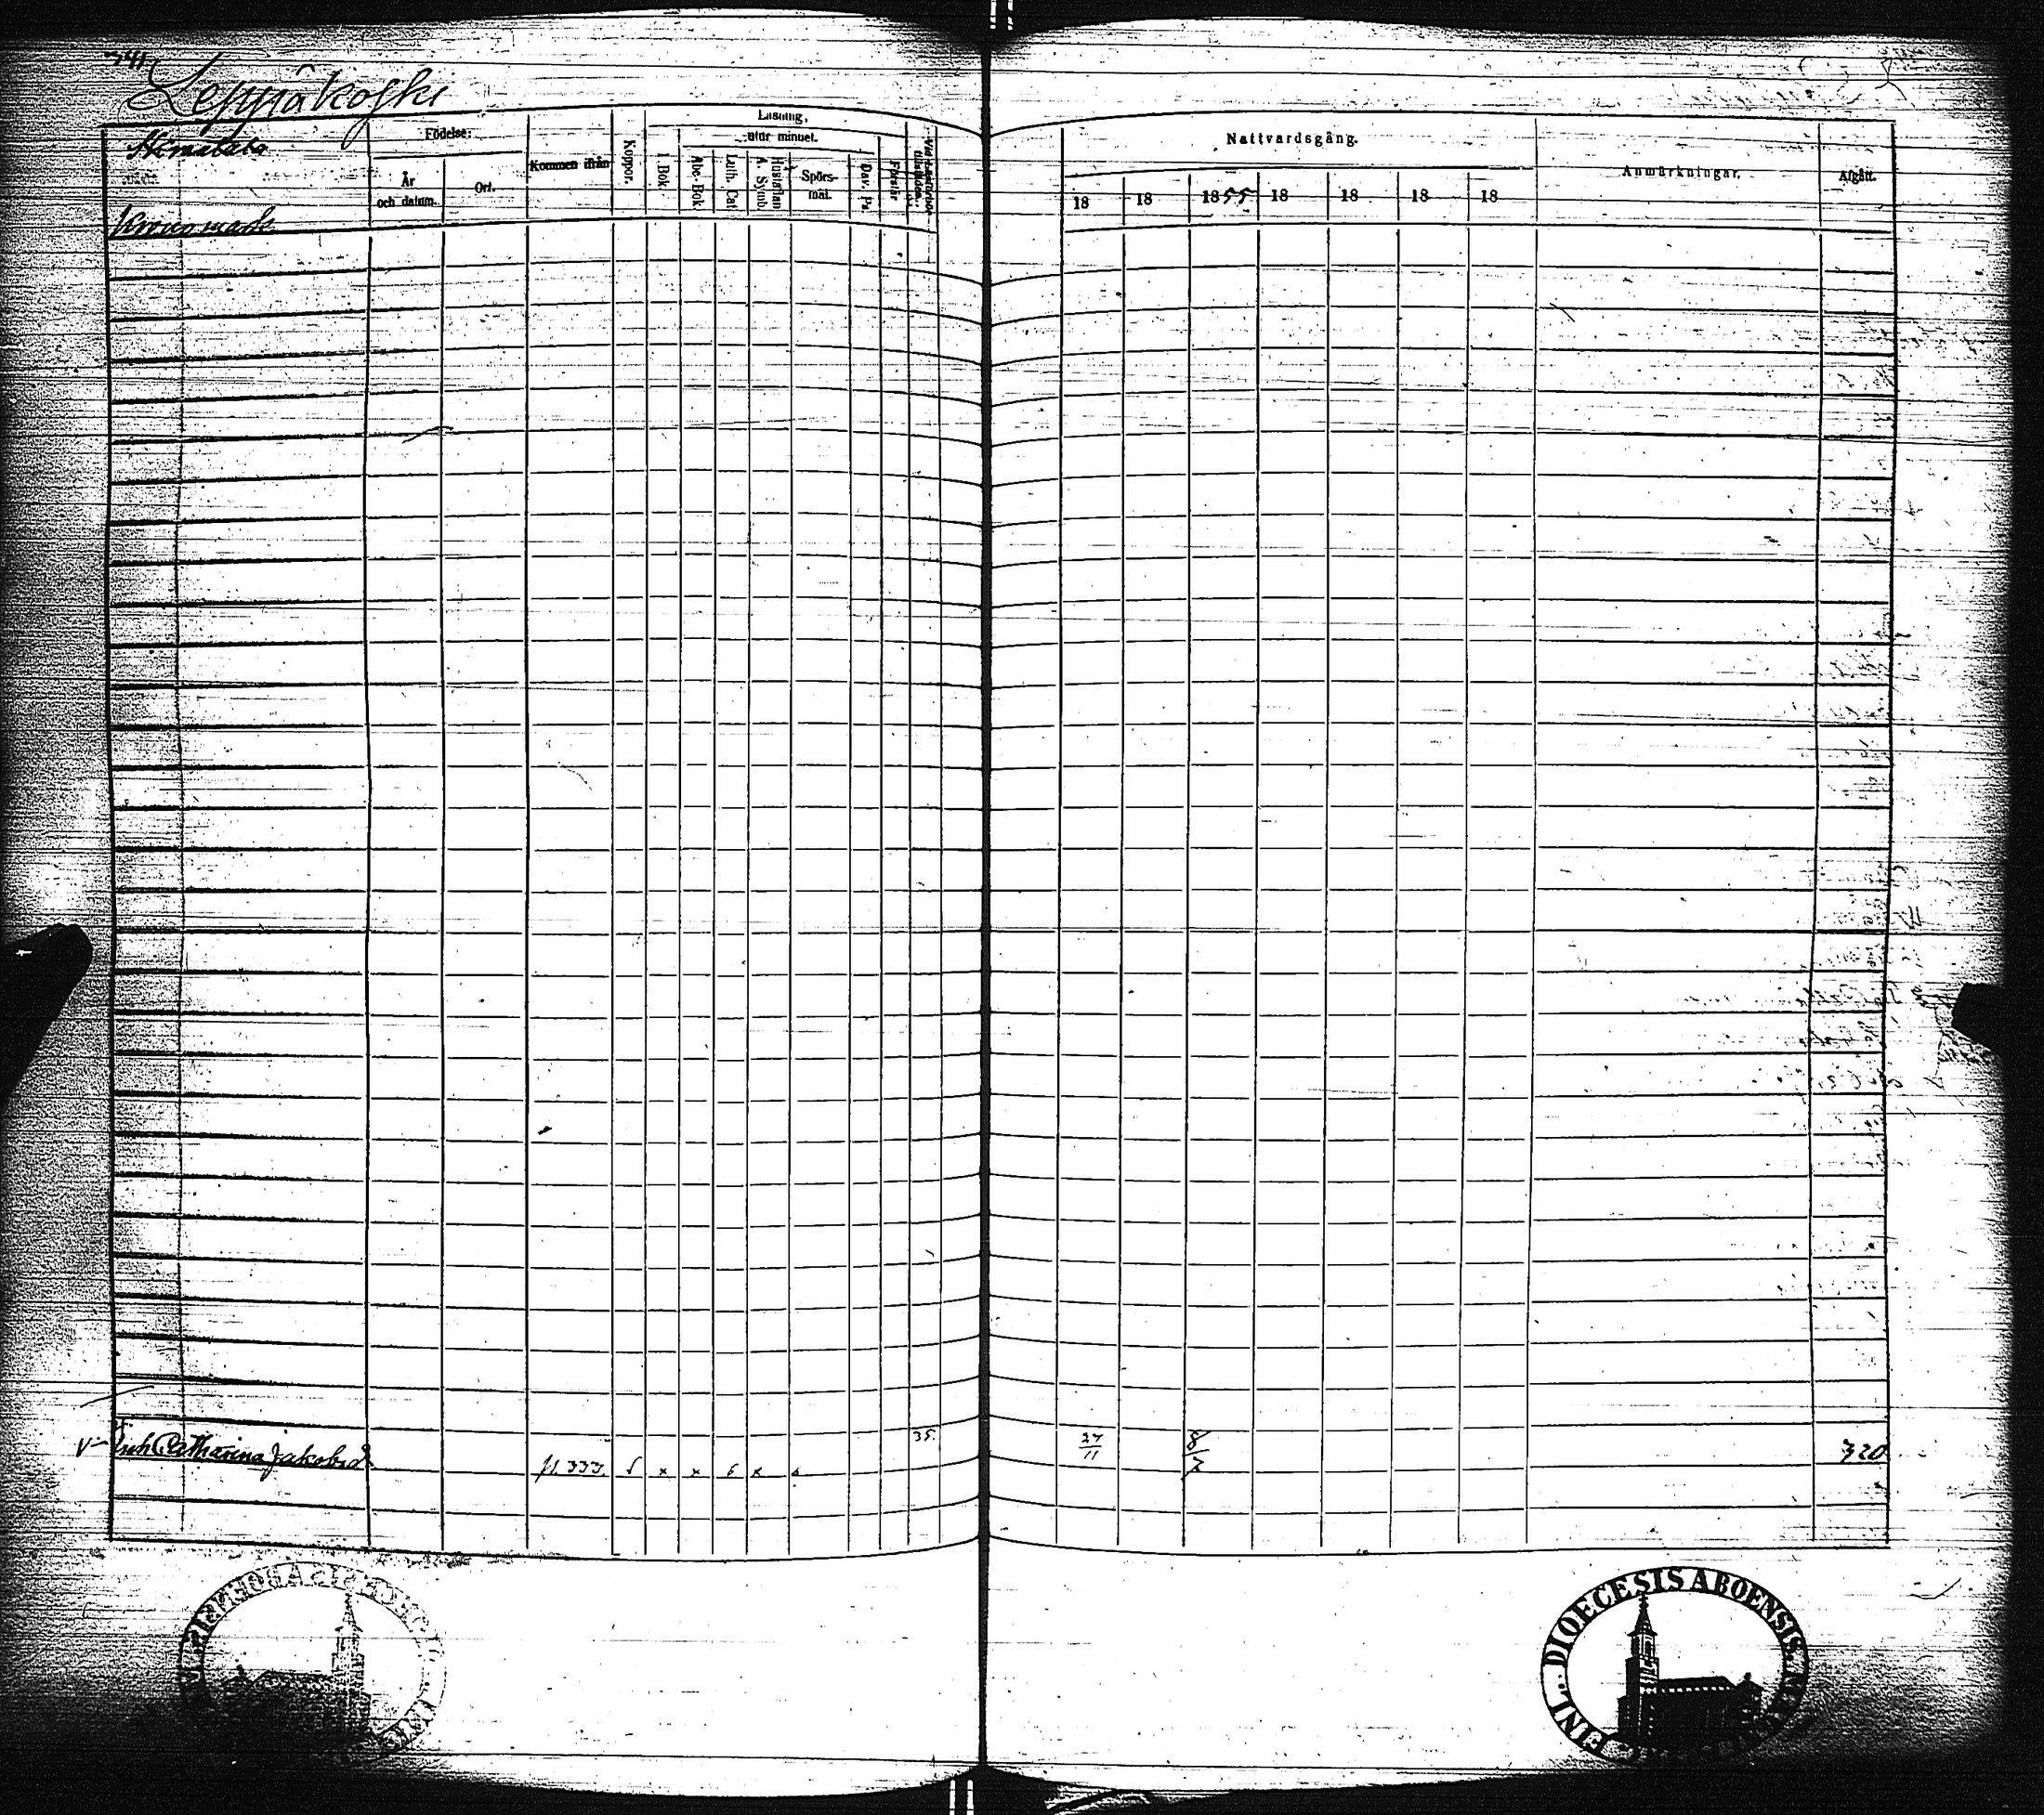 341
Leppäkoski
Födelse:
Läsning,
utur minnet.
Kommen ifrån
Koppor.
I Bok.
Abc-Bok.
Luth. Cat.
Hustaflan A. Symb.
Spörsmål.
Dav. Ps.
Förstår
År och datum.
Ort.
Nattvardsgång.
Anmärkningar.
Afgått.
18 18 1855 18 18 18 18
35.
Catharina Jakobsd
p. 333. x x x
27/11
8/7
320
DIOECESIS ABOENSIS
FINL.